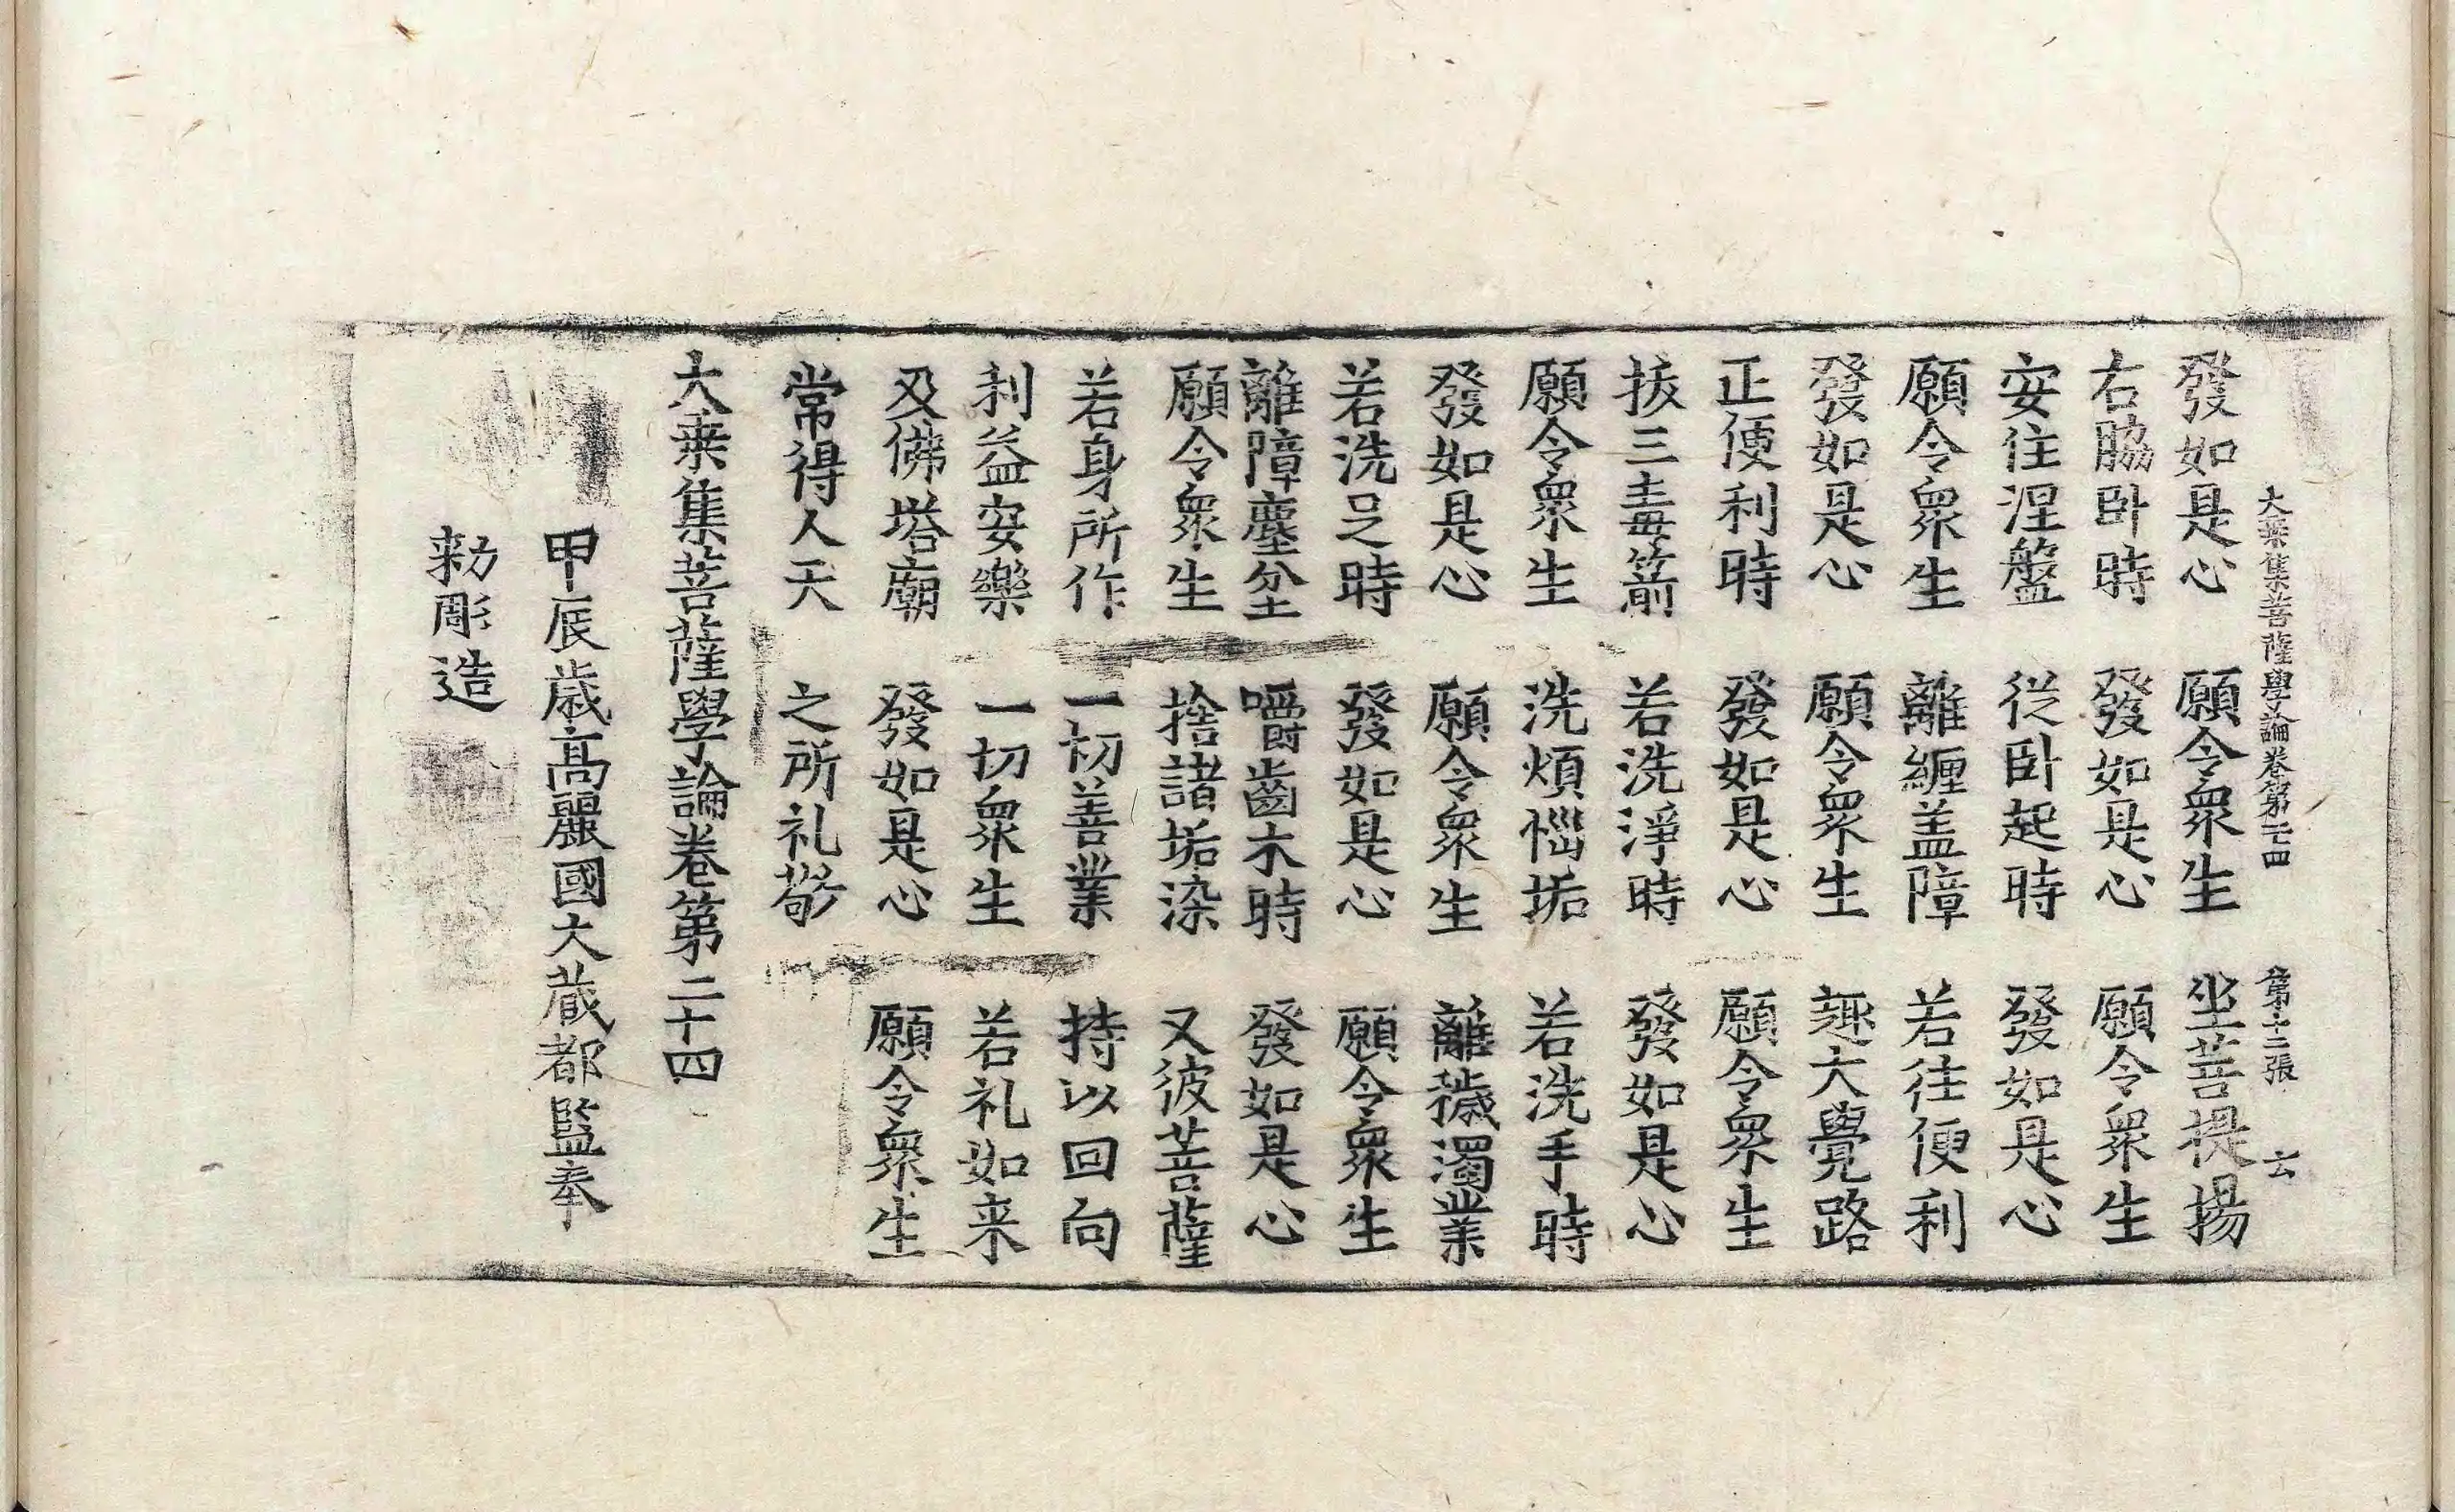 大乗集菩薩學論卷第二十四 第十二張 云
發如是心 願令衆生 坐菩提場
右脇卧時 發如是心 願令衆生
安住涅盤 従卧起時 發如是心
願令衆生 離纏盖障 若往便利
發如是心 願令衆生 趣大覺路
正便利時 發如是心 願令衆生
拔三毒箭 若洗淨時 發如是心
願令衆生 洗煩惱垢 若洗手時
發如是心 願令衆生 離穢濁業
若洗足時 發如是心 願令衆生
離障塵坌 嚼齒木時 發如是心
願令衆生 捨諸垢染 又彼菩薩
若身所作 一切善業 持以回向
利益安樂 一切衆生 若礼如来
及佛塔廟 發如是心 願令衆生
常得人天 之所礼敬
大乗集菩薩學論卷第二十四
甲辰歳髙麗國大蔵都監奉
勑彫造